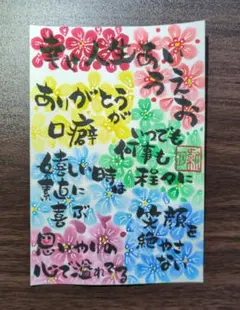 幸せ人生あいうえお
ありがとうが
口癖
いつでも
何事も程々に
嬉しい時は
素直に喜ぶ
笑顔を
絶やさない
思いやりの
心で溢れてる